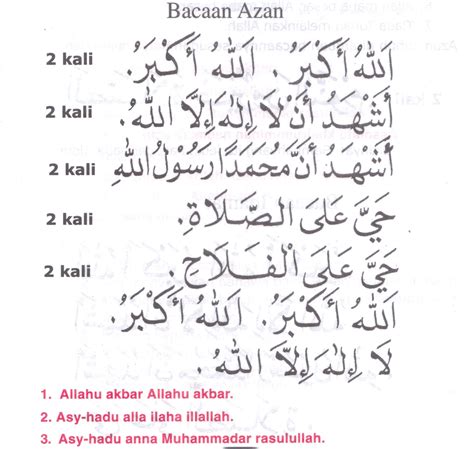 Bacaan Azan
2 kali اَللهُ أَكْبَرُ . اَللهُ أَكْبَرُ.
2 kali أَشْهَدُ أَنْ لَا إِلٰهَ إِلَّا اللهُ.
2 kali أَشْهَدُ أَنَّ مُحَمَّدًا رَسُوْلُ اللهِ
2 kali حَيَّ عَلَى الصَّلَاةِ.
2 kali حَيَّ عَلَى الْفَلَاحِ .
اَللهُ أَكْبَرُ. اَللهُ أَكْبَرُ.
لَا إِلٰهَ إِلَّا اللهُ.
1. Allahu akbar Allahu akbar.
2. Asy-hadu alla ilaha illallah.
3. Asy-hadu anna Muhammadar rasulullah.